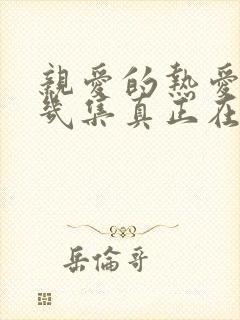 親愛的熱愛
幾集真正在
岳倫哥